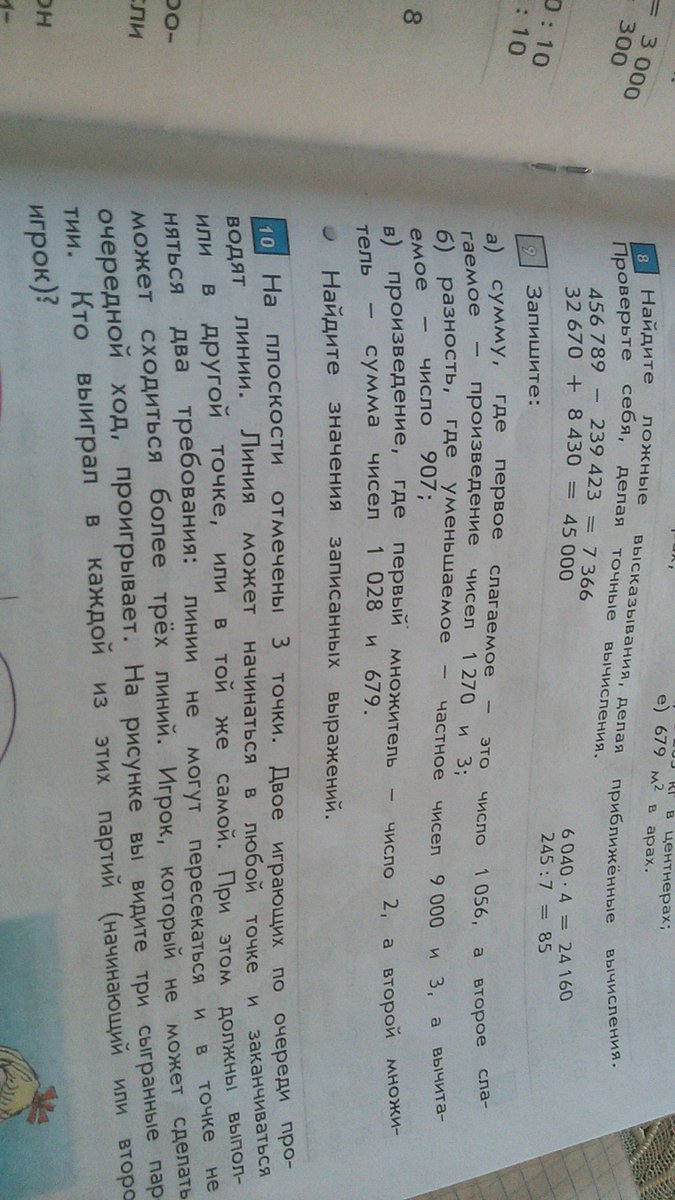 = 3 000
300
0 : 10
: 10
8
ро-
сли
он
и-
кг в центнерах;
е) 679 м² в арах.
8 Найдите ложные высказывания, делая приближённые вычисления.
Проверьте себя, делая точные вычисления.
456 789 − 239 423 = 7 366
6 040 · 4 = 24 160
32 670 + 8 430 = 45 000
245 : 7 = 85
9 Запишите:
а) сумму, где первое слагаемое – это число 1 056, а второе сла-
гаемое – произведение чисел 1 270 и 3;
б) разность, где уменьшаемое – частное чисел 9 000 и 3, а вычита-
емое – число 907;
в) произведение, где первый множитель – число 2, а второй множи-
тель – сумма чисел 1 028 и 679.
Найдите значения записанных выражений.
10 На плоскости отмечены 3 точки. Двое играющих по очереди про-
водят линии. Линия может начинаться в любой точке и заканчиваться
или в другой точке, или в той же самой. При этом должны выпол-
няться два требования: линии не могут пересекаться и в точке не
может сходиться более трёх линий. Игрок, который не может сделать
очередной ход, проигрывает. На рисунке вы видите три сыгранные пар
тии. Кто выиграл в каждой из этих партий (начинающий или второ
игрок)?